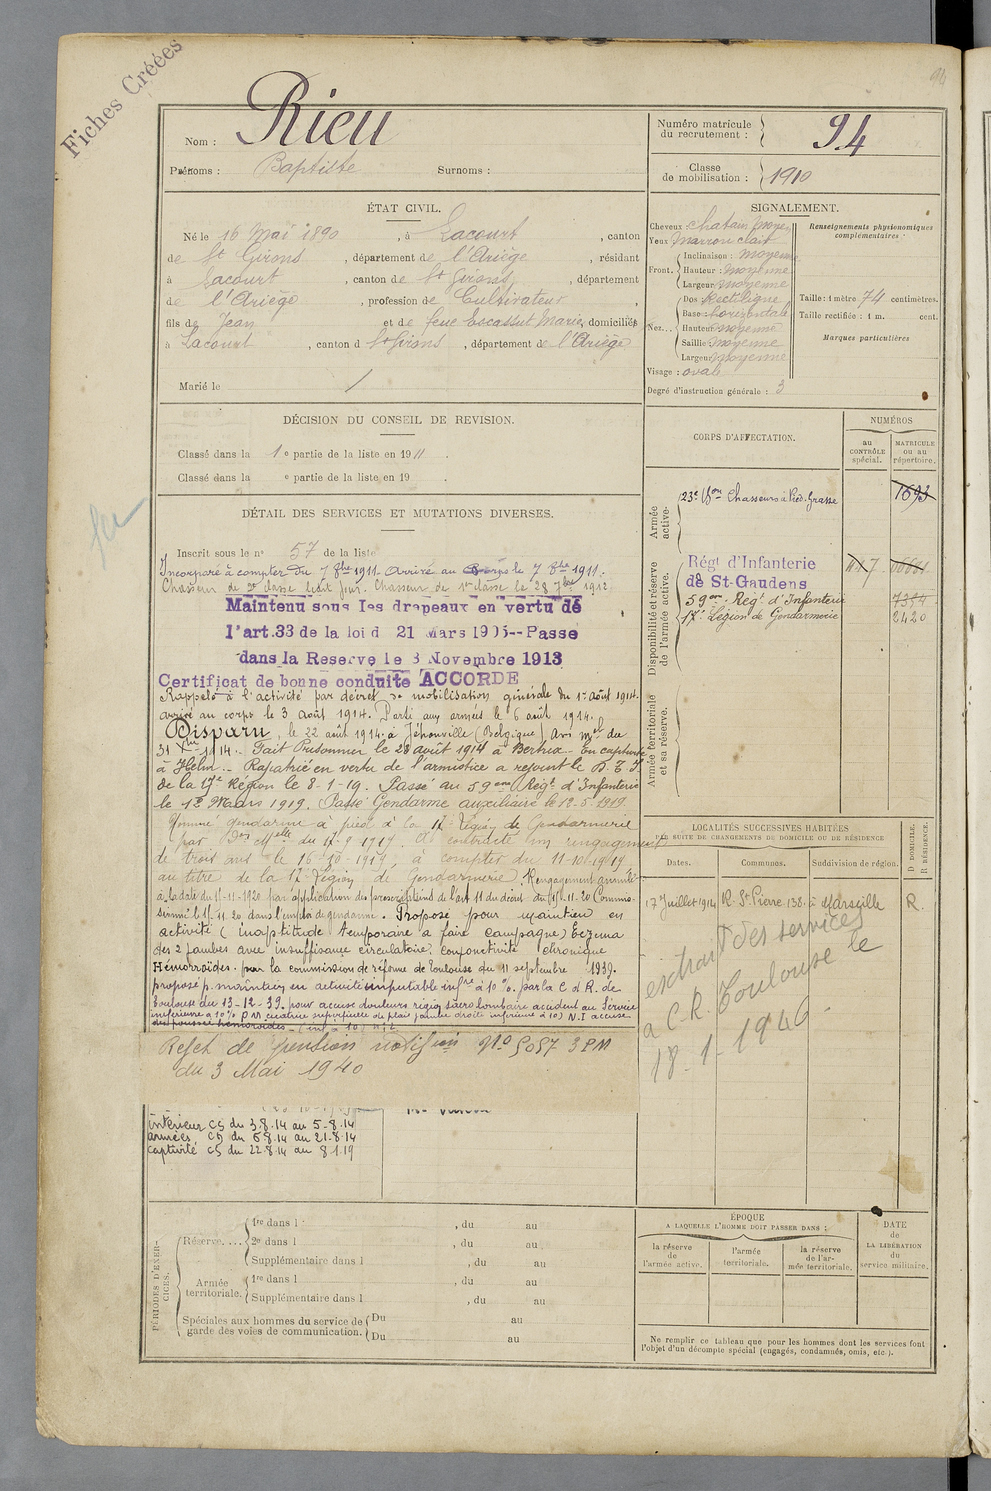 Fiches Créées
94
Nom : Rieu
Prénoms : Baptiste Surnoms :
Numéro matricule du recrutement : 94
Classe de mobilisation : 1910
ÉTAT CIVIL.
Né le 16 Mai 1890, à Lacourt, canton
de St Girons, département de l'Ariège, résidant
à Lacourt, canton de St Girons, département
de l'Ariège, profession de Cultivateur,
fils de Jean et de feue Escassut Marie, domiciliés
à Lacourt, canton d St Girons, département de l'Ariège
Marié le /
SIGNALEMENT.
Cheveux chatain moyen
Yeux marron clair
Front. Inclinaison : moyenne
Hauteur : moyenne
Largeur moyenne
Nez... Dos Rectiligne
Base : horizontale
Hauteur moyenne
Saillie moyenne
Largeur moyenne
Visage : oval
Degré d'instruction générale : 3
Renseignements physionomiques complémentaires :
Taille : 1 mètre 74 centimètres.
Taille rectifiée : 1 m. cent.
Marques particulières
DÉCISION DU CONSEIL DE REVISION.
Classé dans la 1e partie de la liste en 1911.
Classé dans la e partie de la liste en 19 .
DÉTAIL DES SERVICES ET MUTATIONS DIVERSES.
Inscrit sous le n° 57 de la liste
Incorporé à compter du 7 8bre 1911. Arrivé au Corps le 7 8bre 1911.
Chasseur de 2e classe ledit jour. Chasseur de 1re classe le 28 7bre 1912
Maintenu sous les drapeaux en vertu de
l'art.33 de la loi d 21 Mars 1905--Passe
dans la Reserve le 8 Novembre 1913
Certificat de bonne conduite ACCORDE
Rappelé à l'activité par décret de mobilisation générale du 1er août 1914.
arrivé au corps le 3 août 1914. Parti aux armées le 6 août 1914.
Disparu, le 22 août 1914 à Jéhonville (Belgique) Avis mel du
31 Xbre 1914. Fait Prisonnier le 28 août 1914 à Bertrix. En captivité
à Helm.. Rapatrié en vertu de l'armistice a rejoint le D. T. I.
de la 17e Région le 8-1-19. Passé au 59ème Régt d'Infanterie
le 12 Mars 1919. Passé Gendarme auxiliaire le 12-5-1919.
Nommé gendarme à pied à la 17e Légion de Gendarmerie
par Don Melle du 17-9-1919. A contracté un rengagement
de trois ans le 16-10-1919, à compter du 11-10-1919
au titre de la 17e Légion de Gendarmerie. Rengagement annulé
à la date du 15-11-1920 par application des prescriptions de l'art 11 du décret du 15-11-20 Commis-
sionné le 15-11-20 dans l'emploi de gendarme. Proposé pour maintien en
activité (inaptitude temporaire à faire campagne) Eczema
des 2 jambes avec insuffisance circulatoire, conjonctivité chronique
Hémorroïdes. par la commission de réforme de Toulouse du 11 septembre 1939.
proposé p. maintien en activité imputable infre à 10%. par la C d R. de
Toulouse du 13-12-39. pour accuse douleurs région sacro lombaire accident au Service
inférieure à 10% P M cicatrice superficielle de plaie jambe droite inférieure à 10) N.I accuse
des poussées hémoroïdes
Rejet de pension notifiée n° 5057 3 PM
du 3 Mai 1940
intérieur CS du 3.8.14 au 5-8-14
armées, CS du 6.8.14 au 21-8-14
captivité CS du 22.8.14 au 8.1.19
CORPS D'AFFECTATION.
NUMÉROS
au CONTRÔLE spécial.
MATRICULE ou au répertoire.
Armée active.
23e Bon Chasseurs à Pied. Grasse 1693
Disponibilité et réserve de l'armée active.
Régt d'Infanterie
de St-Gaudens
59ème Régt d'Infanterie 7354
17e Légion de Gendarmerie 2420
Armée territoriale et sa réserve.
LOCALITÉS SUCCESSIVES HABITÉES
PAR SUITE DE CHANGEMENTS DE DOMICILE OU DE RÉSIDENCE
Dates. Communes. Subdivision de région.
D DOMICILE. R RÉSIDENCE.
17 Juillet 1914 R. St Pierre 138. à Marseille R.
extrait des services
a C.R. Toulouse le
18-1-1946
PÉRIODES D'EXERCICES.
Réserve.... 1re dans l , du au
2e dans l , du au
Supplémentaire dans l , du au
Armée territoriale. 1re dans l , du au
Supplémentaire dans l , du au
Spéciales aux hommes du service de garde des voies de communication. Du au
Du au
ÉPOQUE
A LAQUELLE L'HOMME DOIT PASSER DANS :
la réserve de l'armée active.
l'armée territoriale.
la réserve de l'armée territoriale.
DATE de LA LIBÉRATION du service militaire.
Ne remplir ce tableau que pour les hommes dont les services font
l'objet d'un décompte spécial (engagés, condamnés, omis, etc.).